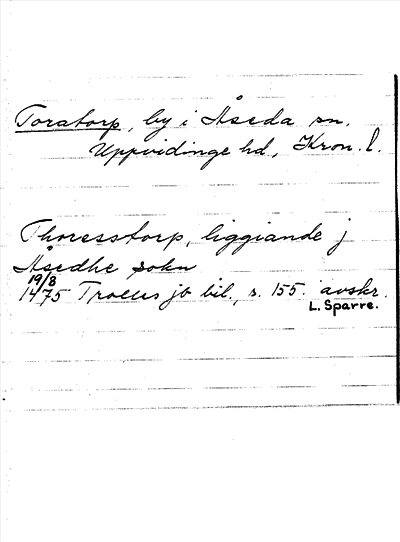 Toratorp, by i Åseda sn,
Uppvidinge hd, Kron. l.
Thoresstorp, liggiande j
Åsedhe sokn
19/8
1475 Trolles jb bil., s. 155. avskr.
L. Sparre.